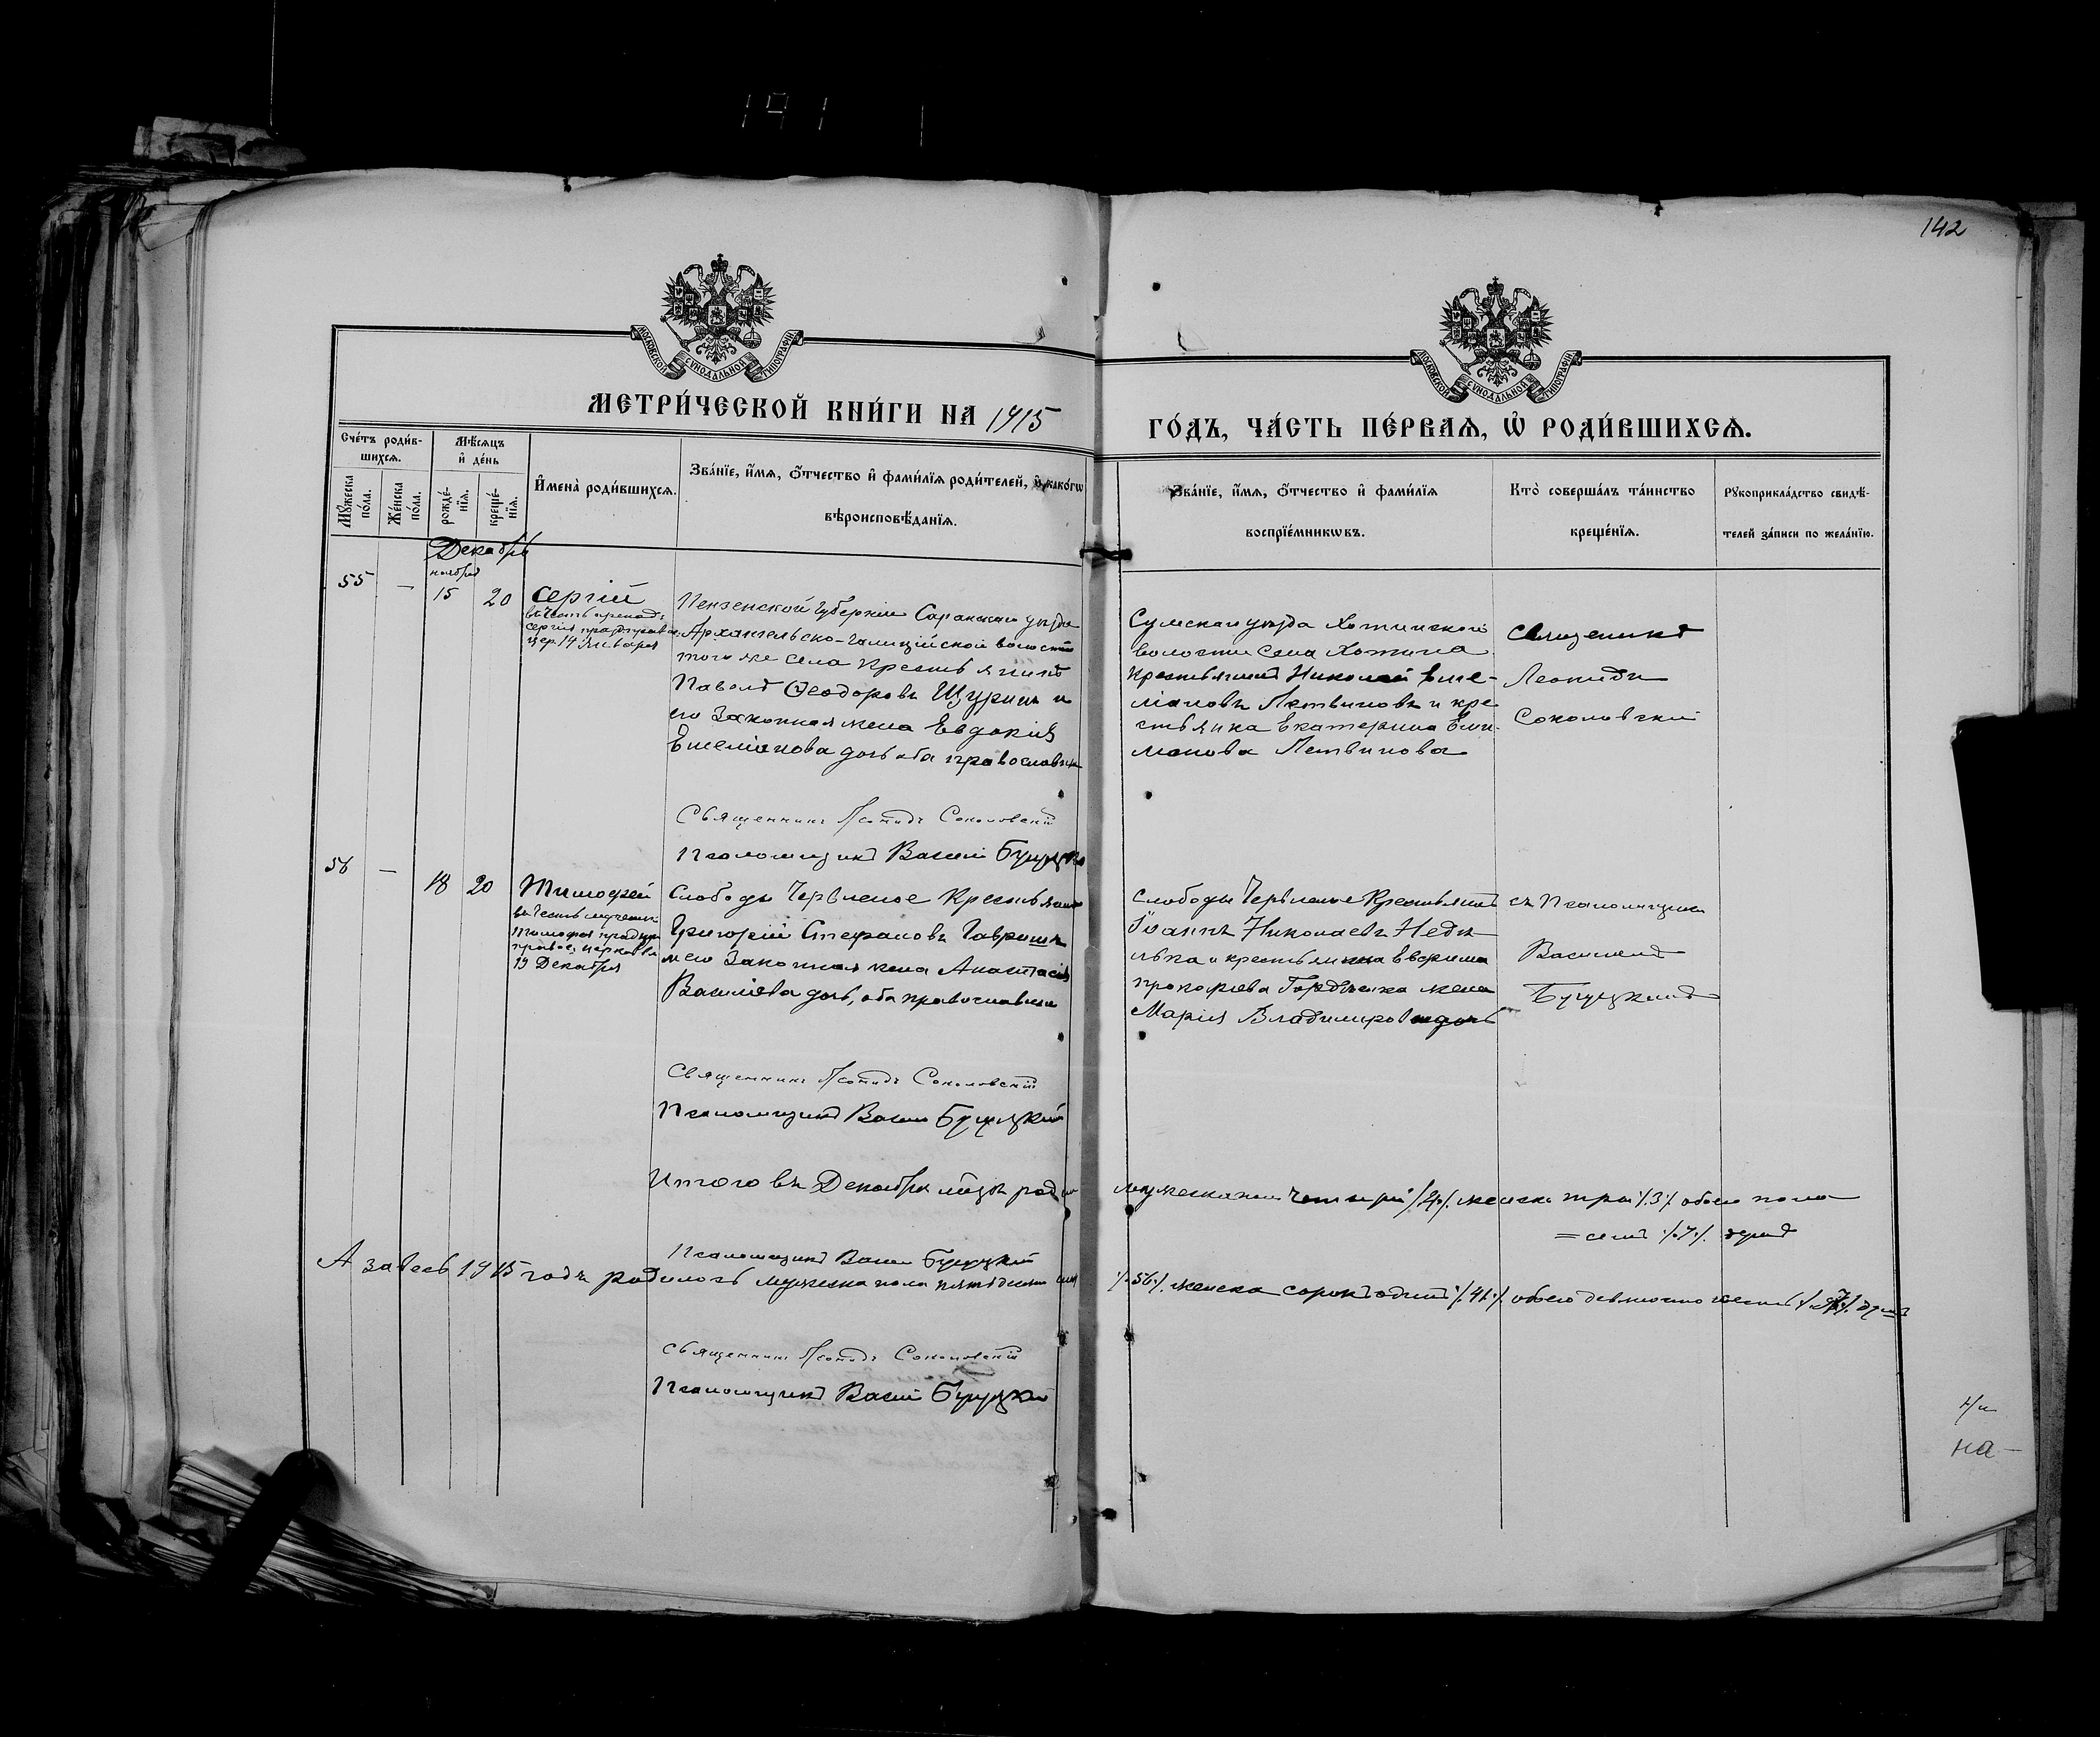 142
МОСКОВСКОЙ СѴНОДАЛЬНОЙ ТИПОГРАФІИ
МОСКОВСКОЙ СѴНОДАЛЬНОЙ ТИПОГРАФІИ
МЕТРИ́ЧЕСКОЙ КНИ́ГИ НА 1915
ГО́ДЪ, ЧА́СТЬ ПЕ́РВАѦ, Ѡ҆ РОДИ́ВШИХСѦ.
Сче́тъ роди́в-
шихсѧ.
Мꙋ́жеска по́ла.
Же́нска по́ла.
Мѣ́сѧцъ
и҆ де́нь
рожде́-
нїѧ.
креще́-
нїѧ.
И҆мена̀ роди́вшихсѧ.
Зва́нїе, и҆́мѧ, ѻ҆́тчество и҆ фами́лїѧ роди́телей, и҆ како́гѡ
вѣроисповѣ́данїѧ.
Зва́нїе, и҆́мѧ, ѻ҆́тчество и҆ фами́лїѧ
воспрїе́мникѡвъ.
Кто̀ соверша́лъ та́инство
креще́нїѧ.
Рꙋкоприкла́дство свидѣ́-
телей за́писи по жела́нїю.
Декабрь
ноября
55 — 15 20 Сергій
въ честь препод.
Сергія
цер. 14 Января
Пензенской губерніи Саранскаго уѣзда
Архангельско-Голиційской волости
того же села Крестьянинъ
Павелъ Ѳеодоровъ Щуринъ и
его Законная жена Евдокія
Емеліанова дочь оба православные
Сумскаго уѣзда Хотинской
волости Села Хотина
крестьянинъ Николай Еме-
ліановъ Литвиновъ и кре-
стьянка Екатерина Еми-
ланова Литвинова
Священникъ
Леонидъ
Соколовскій
Священникъ Леонидъ Соколовскій
Псаломщикъ Васили Буцкій
56 — 18 20 Тимофей
въ честь мученик.
Тимофея
правос. церковью
19 Декабря
Слободы Червленое Крестьянинъ
Григорій Стефановъ Гавришъ
и его Законная жена Анастасія
Василіева дочь, оба православные
Слободы Червленое Крестьянинъ
Іоаннъ Николаевъ Недѣ-
лька и крестьянина
Прокофіева Гордѣенка жена
Марія Владимирова дочь
съ Псаломщикомъ
Василіемъ
Священникъ Леонидъ Соколовскій
Псаломщикъ Васили
Итого въ Декабрѣ мѣсяцѣ родил.
мужеска пола четыри /.4./. женска три /.3./ обоего пола
= семь /.7./. душъ
Псаломщикъ Васили
А за весь 1915 годъ родилось мужеска пола пятьдесятъ шесть
/.56./. женска сорокъ одинъ /.41./. обоего девяносто
Священникъ Леонидъ Соколовскій
Псаломщикъ Васили
на